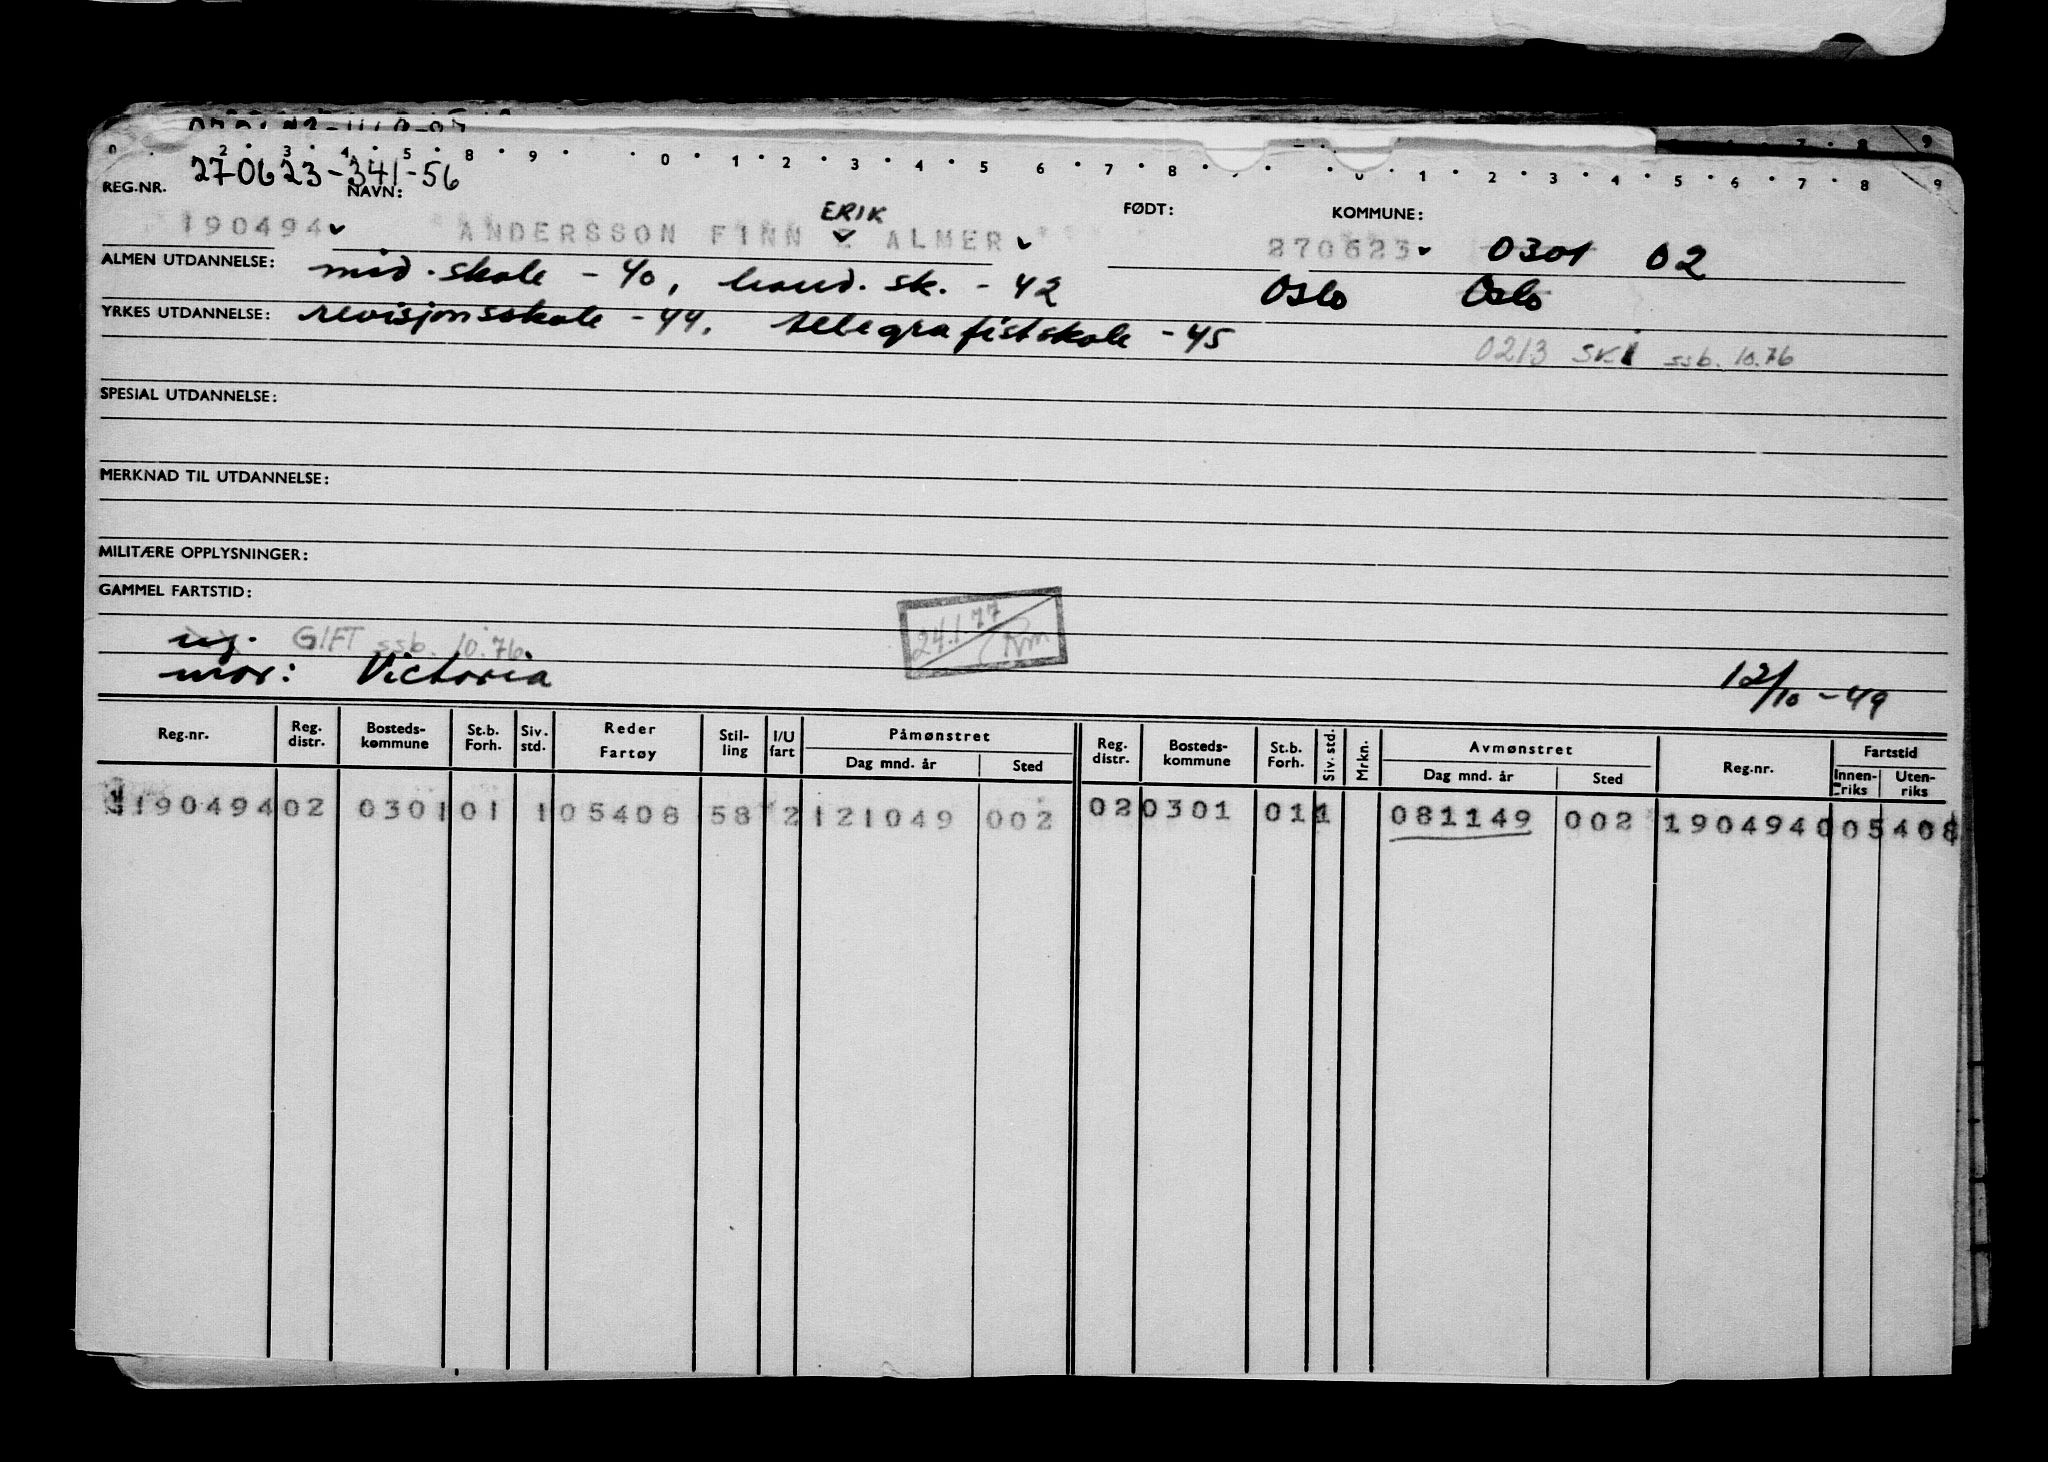 270623-341-56
REG.NR. NAVN: FØDT: KOMMUNE:
ERIK
190494 ANDERSSON FINN E ALMER 270623 0301 02
ALMEN UTDANNELSE: mid. skole - 40, hand. sk. - 42 Oslo Oslo
YRKES UTDANNELSE: revisjonsskole - 44. telegrafistskole - 45
0213 SKI ssb. 10.76
SPESIAL UTDANNELSE:
MERKNAD TIL UTDANNELSE:
MILITÆRE OPPLYSNINGER:
GAMMEL FARTSTID:
24.1.77
ug. GIFT ssb. 10.76
mor: Victoria 12/10 - 49
Reg.nr. Reg. distr. Bosteds- kommune St.b. Forh. Siv. std. Reder Fartøy Stil- ling I/U fart Påmønstret Dag mnd. år Sted Reg. distr. Bosteds- kommune St.b. Forh. Siv. std. Mrkn. Avmønstret Dag mnd. år Sted Reg.nr. Fartstid Innen- riks Uten- riks
190494 02 0301 01 1 05408 58 2 121049 002 02 0301 01 1 081149 002 1904940 05408